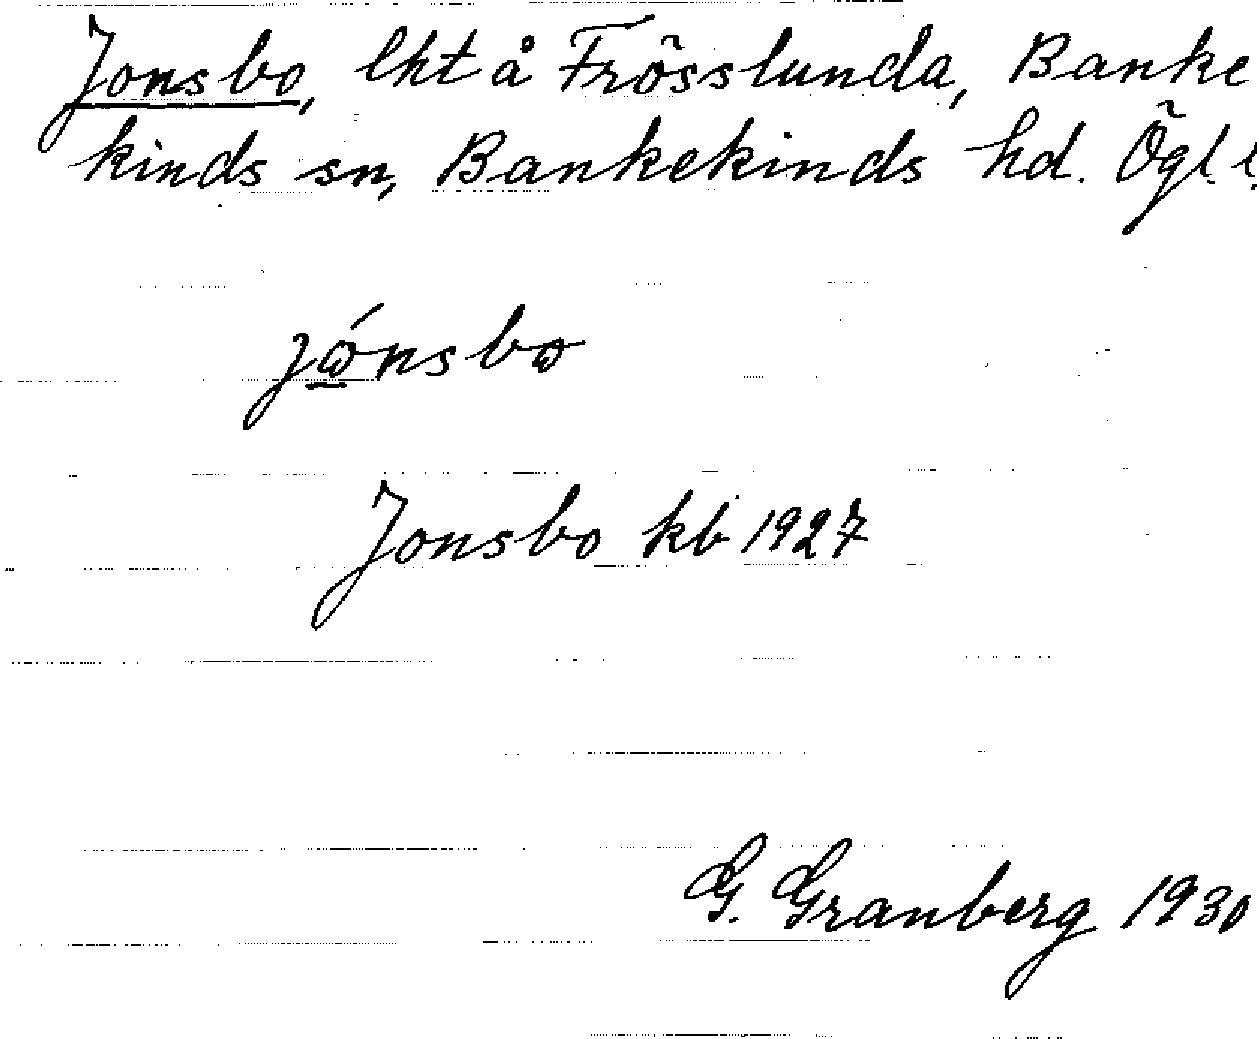 Jonsbo, lht å Frösslunda, Banke
kinds sn, Bankekinds hd. Ögl l.
jó̲nsbo
Jonsbo kb 1927
G. Granberg 1930